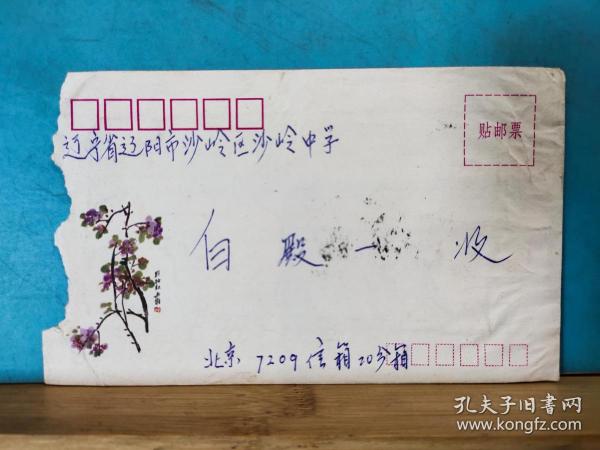 贴邮票
辽宁省辽阳市沙岭区沙岭中学
白殿一 收
北京7209信箱20分箱
孔夫子旧书网
www.kongfz.com